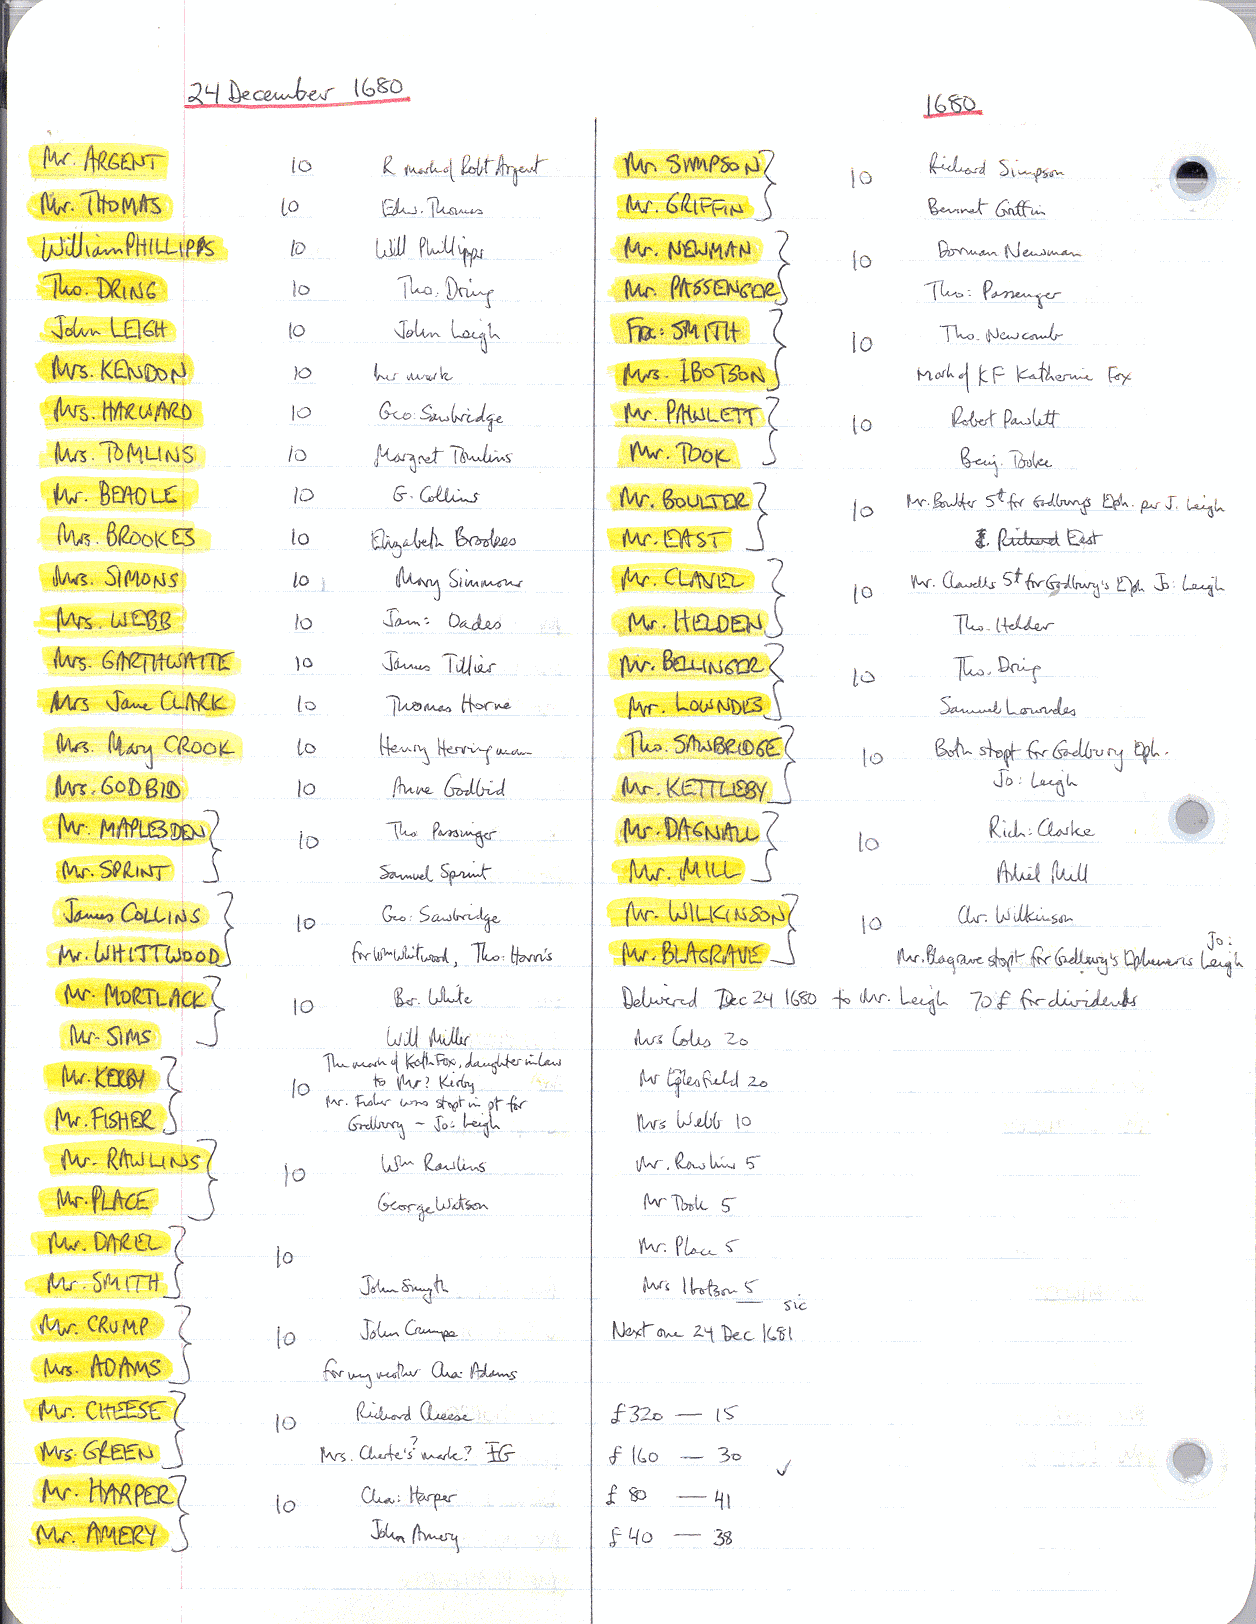 24 December 1680
Mr. ARGENT 10 R mark of Robt Argent
Mr. THOMAS 10 Edw. Thomas
William PHILLIPPS 10 Will Phillipps
Tho. DRING 10 Tho. Dring
John LEIGH 10 John Leigh
Mrs. KENDON 10 her mark
Mrs. HARWARD 10 Geo: Sawbridge
Mrs. TOMLINS 10 Margret Tomlins
Mr. BEADLE 10 G. Collins
Mrs. BROOKES 10 Elizabeth Brookes
Mrs. SIMONS 10 Mary Simmons
Mrs. WEBB 10 Jam: Oades
Mrs. GARTHWAITE 10 James Tillier
Mrs Jane CLARK 10 Thomas Horne
Mrs. Mary CROOK 10 Henry Herringman
Mrs. GODBID 10 Anne Godbid
Mr. MAPLESDEN 10 Tho Passinger
Mr. SPRINT Samuel Sprint
James COLLINS 10 Geo: Sawbridge
Mr. WHITTWOOD for Wm Whitwood, Tho: Harris
Mr. MORTLACK 10 Ber. White
Mr. SIMS Will Miller
Mr. KERBY 10 The mark of Kath Fox, daughter in law
to Mr? Kirby
Mr. FISHER Mr. Fisher was stopt in pt for
Gadbury - Jo: Leigh
Mr. RAWLINS 10 Wm Rawlins
Mr. PLACE George Watson
Mr. DARIEL 10
Mr. SMITH John Smyth
Mr. CRUMP 10 John Crumpe
Mrs. ADAMS for my mother Cha: Adams
Mr. CHEESE 10 Richard Cheese
Mrs. GREEN Mrs. mark? IG
Mr. HARPER 10 Cha: Harper
Mr. AMERY John Amery
1680
Mr. SIMPSON 10 Richard Simpson
Mr. GRIFFIN Bennet Griffin
Mr. NEWMAN 10 Dorman Newman
Mr. PASSENGER Tho: Passenger
Fra: SMITH 10 Tho. Newcomb
Mrs. IBOTSON Mark of KF Katherine Fox
Mr. PAWLETT 10 Robert Pawlett
Mr. TOOK Benj. Tooke
Mr. BOULTER 10 Mr. Boulter 5 st for Gadburys Eph. per J. Leigh
Mr. EAST Richard East
Mr. CLAVEL 10 Mr. Clavells 5 st for Gadbury's Eph Jo: Leigh
Mr. HELDEN Tho. Helder
Mr. BELLINGER 10 Tho. Dring
Mr. LOWNDES Samuel Lowndes
Tho. SAWBRIDGE 10 Both stopt for Gadbury Eph.
Mr. KETTLEBY Jo: Leigh
Mr. DAGNALL 10 Rich: Clarke
Mr. MILL Abiel Mill
Mr. WILKINSON 10 Chr. Wilkinson
Mr. BLAGRAVE Mr. Blagrave stopt for Gadbury's Ephemeris Jo: Leigh
Delivered Dec 24 1680 to Mr. Leigh 70£ for dividends
Mrs Coles 20
Mr Eglesfield 20
Mrs Webb 10
Mr. Rawlins 5
Mr Took 5
Mr. Place 5
Mrs Ibotson 5
sic
Next one 24 Dec 1681
£320 — 15
£160 — 30 ✓
£ 80 — 41
£ 40 — 38